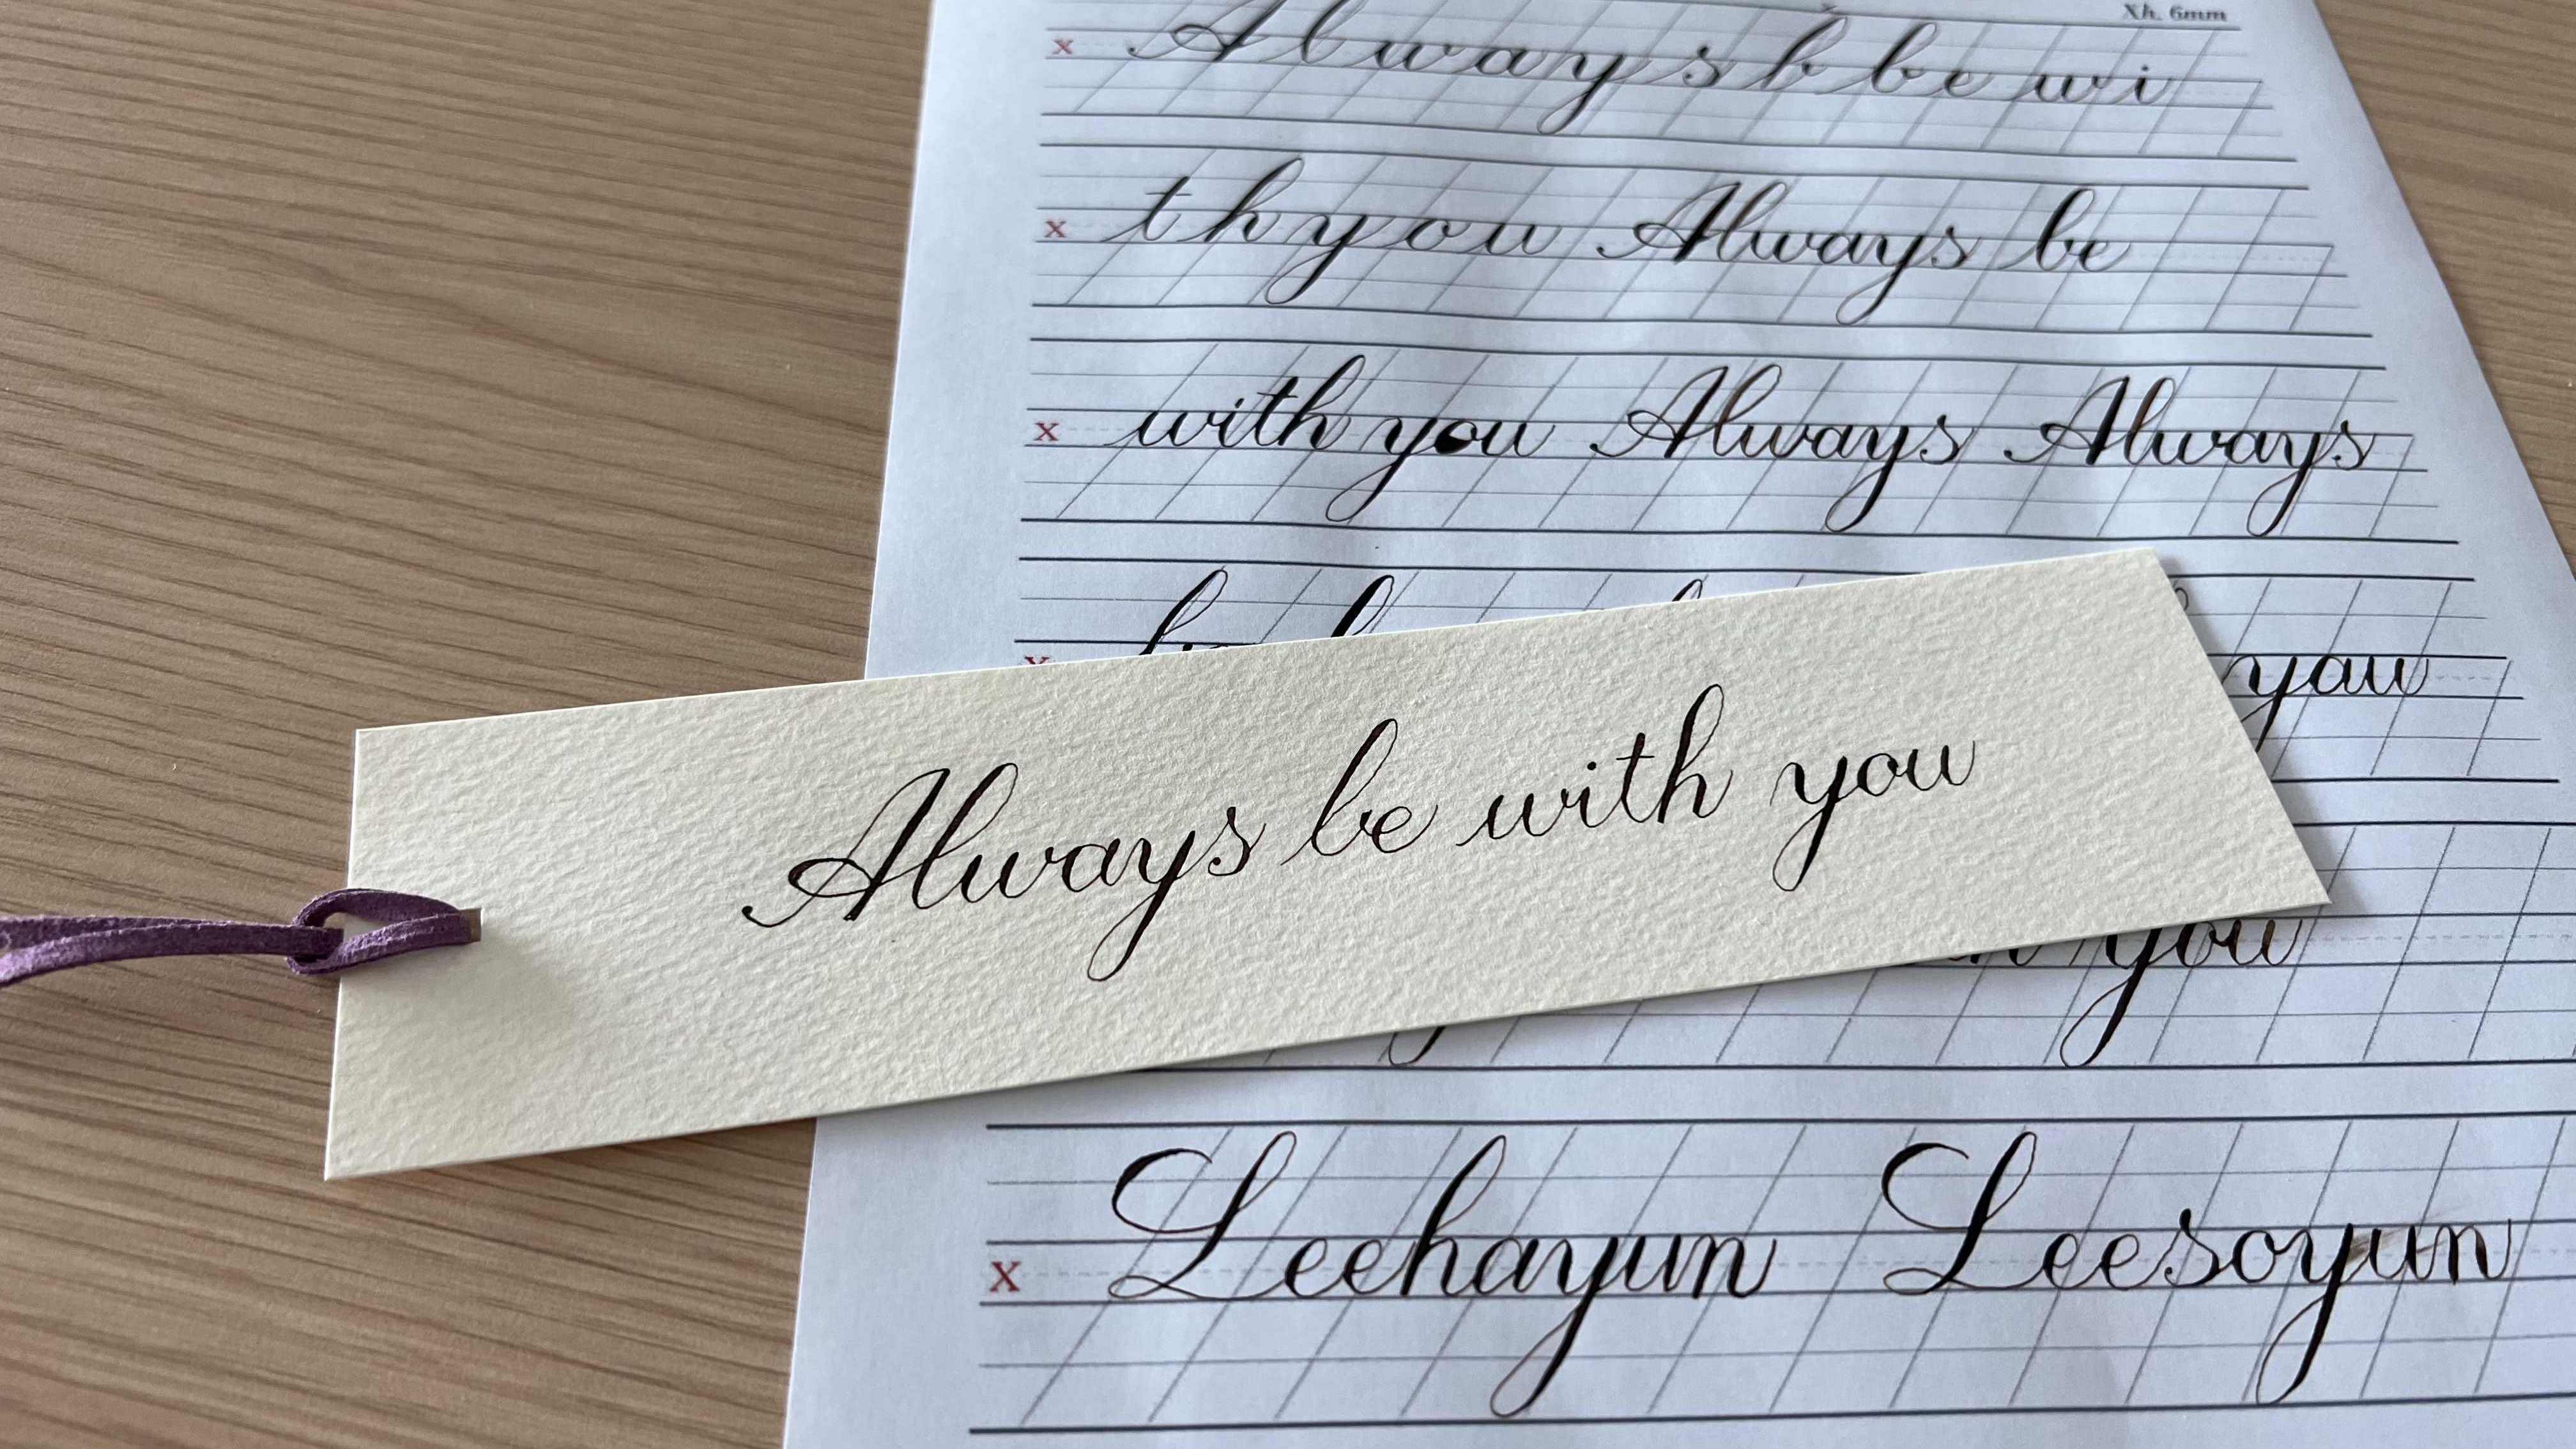 Xh. 6mm
x A l w a y s b b e w i
x t h y o u Always be
x with you Always Always
x
you
Always be with you
you
x Leehayun Leesoyun